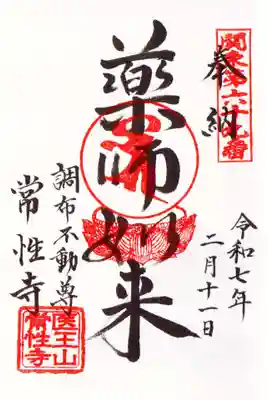 奉納
関東第六十九番
令和七年
二月十一日
薬師如来
調布不動尊
常性寺
医王山
常性寺